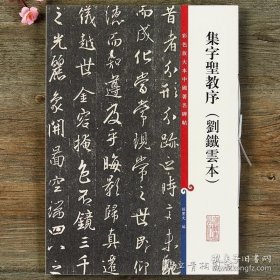 彩色放大本中國著名碑帖
集字聖教序（劉鐵雲本）
孫寶文 編
者分形分跡之時言未馳
而成化當常現常之世民仰
德而知遵及乎晦影歸真遷
儀越世金容掩色不鏡三千
之光麗象開圖空端四八之